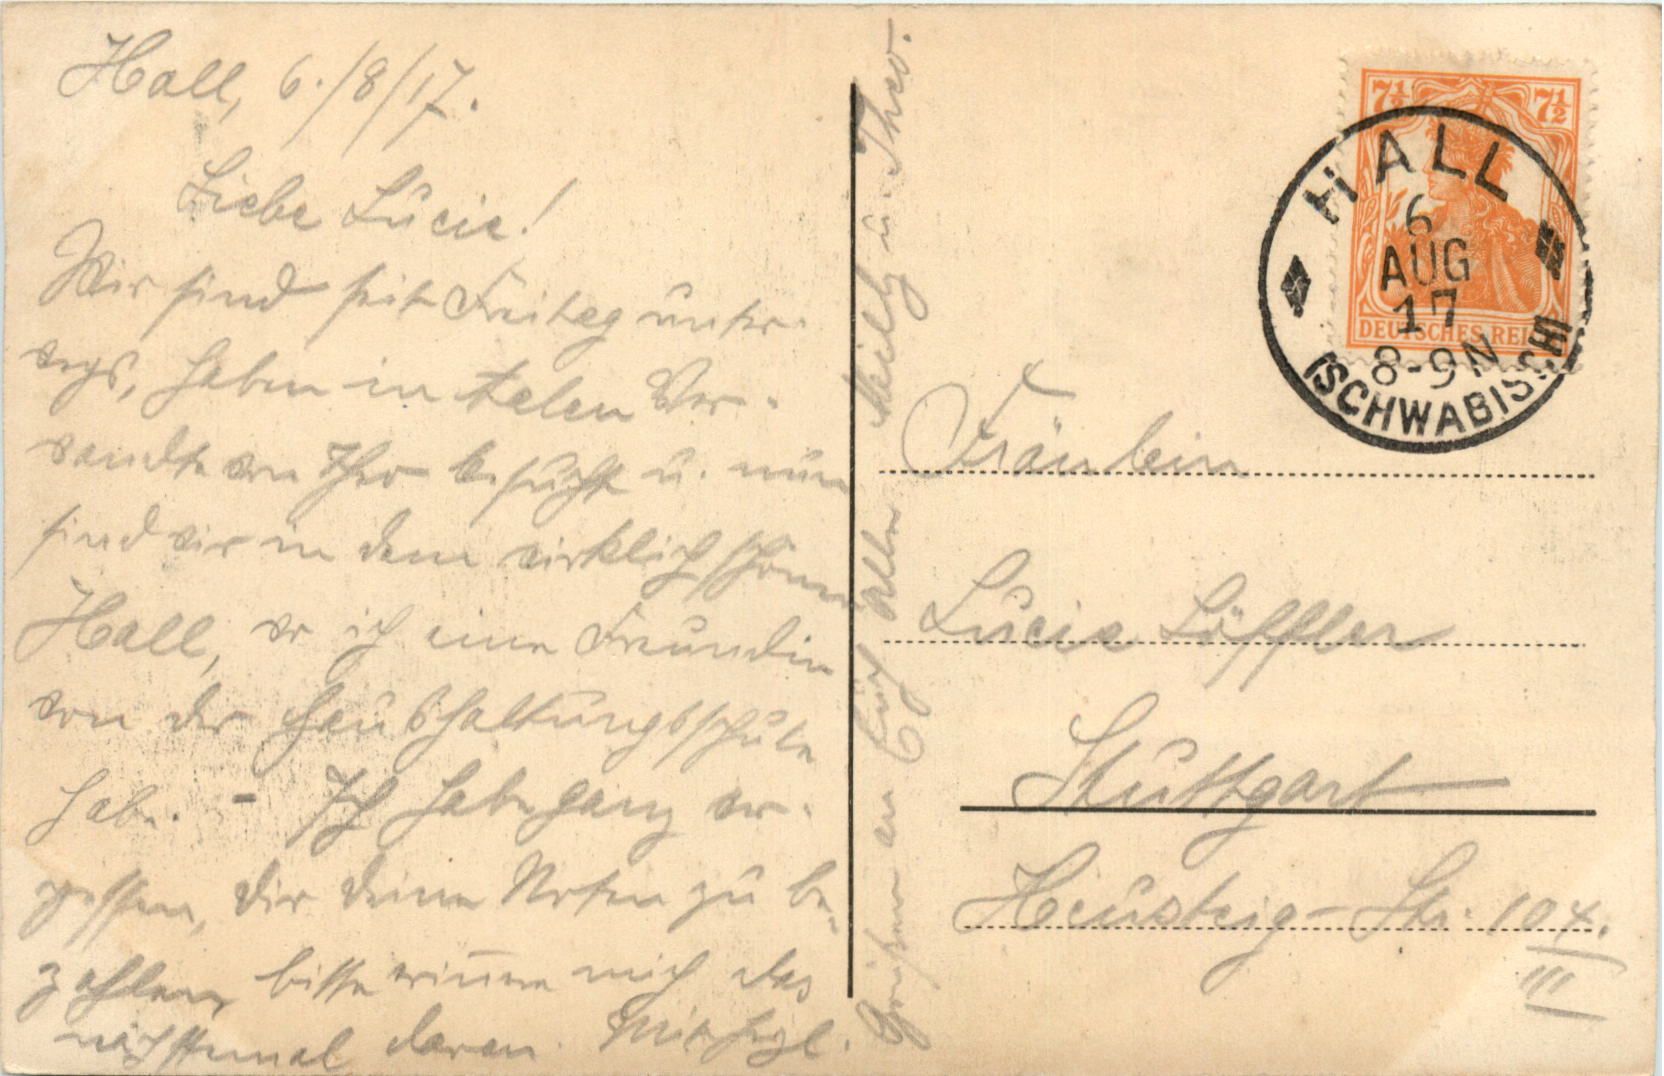 Hall, 6./8/17.
Liebe Lucie!
Wir sind seit Freitag unter-
wegs, haben in Aalen Ver-
wandte von Theo besucht u. nun
sind wir in dem wirklich schönen
Hall, wo ich eine Freundin
von der Haushaltungsschule
habe. - Ich habe ganz ver-
gessen, dir deine Noten zu be-
zahlen, bitte erinnere mich das
nächstemal daran. Mit herzl.
Grüßen an Euch Alle u. Theo.
7½ 7½
DEUTSCHES REICH
HALL
6
AUG
17
8-9N
(SCHWÄBISCH)
Fräulein
Lucie Löffler
Stuttgart
Heusteig-Str. 104.
III